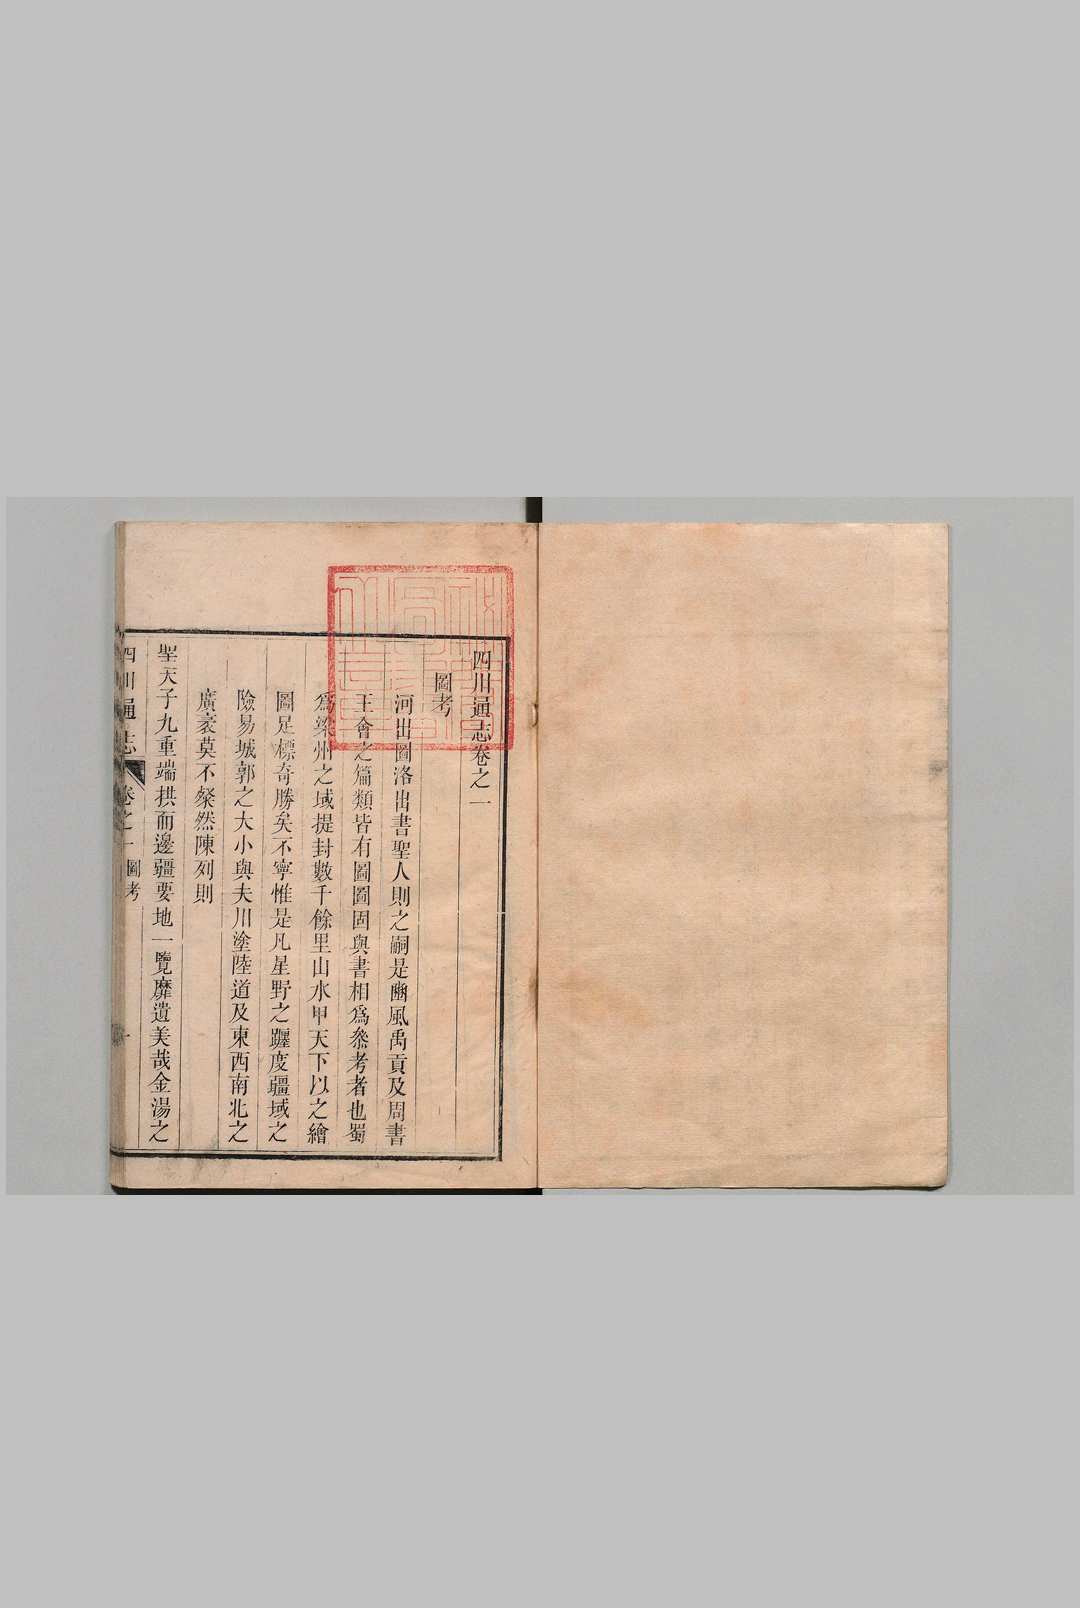 四川通志卷之一
圖考
河出圖洛出書聖人則之嗣是豳風禹貢及周書
王會之篇類皆有圖圖固與書相爲叅考者也蜀
爲梁州之域提封數千餘里山水甲天下以之繪
圖足標奇勝矣不寧惟是凡星野之躔度疆域之
險易城郭之大小與夫川塗陸道及東西南北之
廣袤莫不粲然陳列則
聖天子九重端拱而邊疆要地一覽靡遺美哉金湯之
四川通志 卷之一 圖考 一